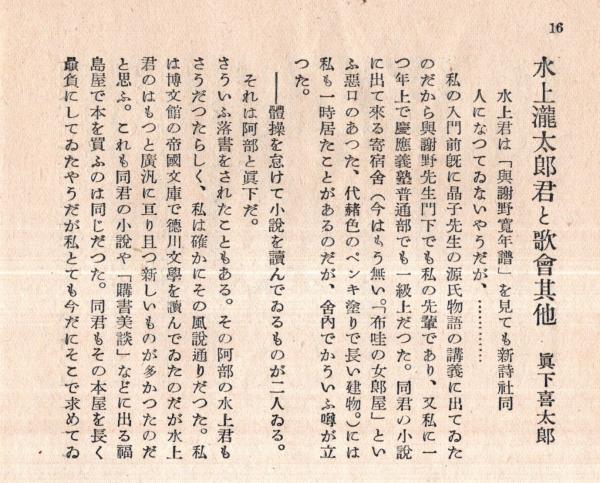 16
水上瀧太郎君と歌會其他　眞下喜太郎
水上君は「與謝野寬年譜」を見ても新詩社同
人になつてゐないやうだが、…………
私の入門前旣に晶子先生の源氏物語の講義に出てゐた
のだから與謝野先生門下でも私の先輩であり、又私に一
つ年上で慶應義塾普通部でも一級上だつた。同君の小說
に出て來る寄宿舍（今はもう無い。「布哇の女郎屋」とい
ふ惡口のあつた、代赭色のペンキ塗りで長い建物。）には
私も一時居たことがあるのだが、舍內でかういふ噂が立
つた。
――體操を怠けて小說を讀んでゐるものが二人ゐる。
それは阿部と眞下だ。
さういふ落書をされたこともある。その阿部の水上君も
さうだつたらしく、私は確かにその風說通りだつた。私
は博文館の帝國文庫で德川文學を讀んでゐたのだが水上
君のはもつと廣汎に亙り且つ新しいものが多かつたのだ
と思ふ。これも同君の小說や「購書美談」などに出る福
島屋で本を買ふのは同じだつた。同君もその本屋を長く
贔負にしてゐたやうだが私とても今だにそこで求めてゐ